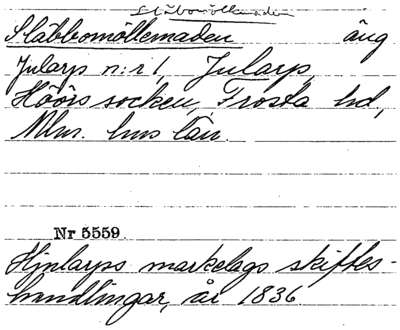 Släbbomöllemaden
Släbbomöllemaden äng
Jularp n:r 1, Jularp,
Höörs socken, Frosta hd,
Mlm. hus län.
Nr 5559
Hjularps markelags skiftes-
handlingar, år 1836